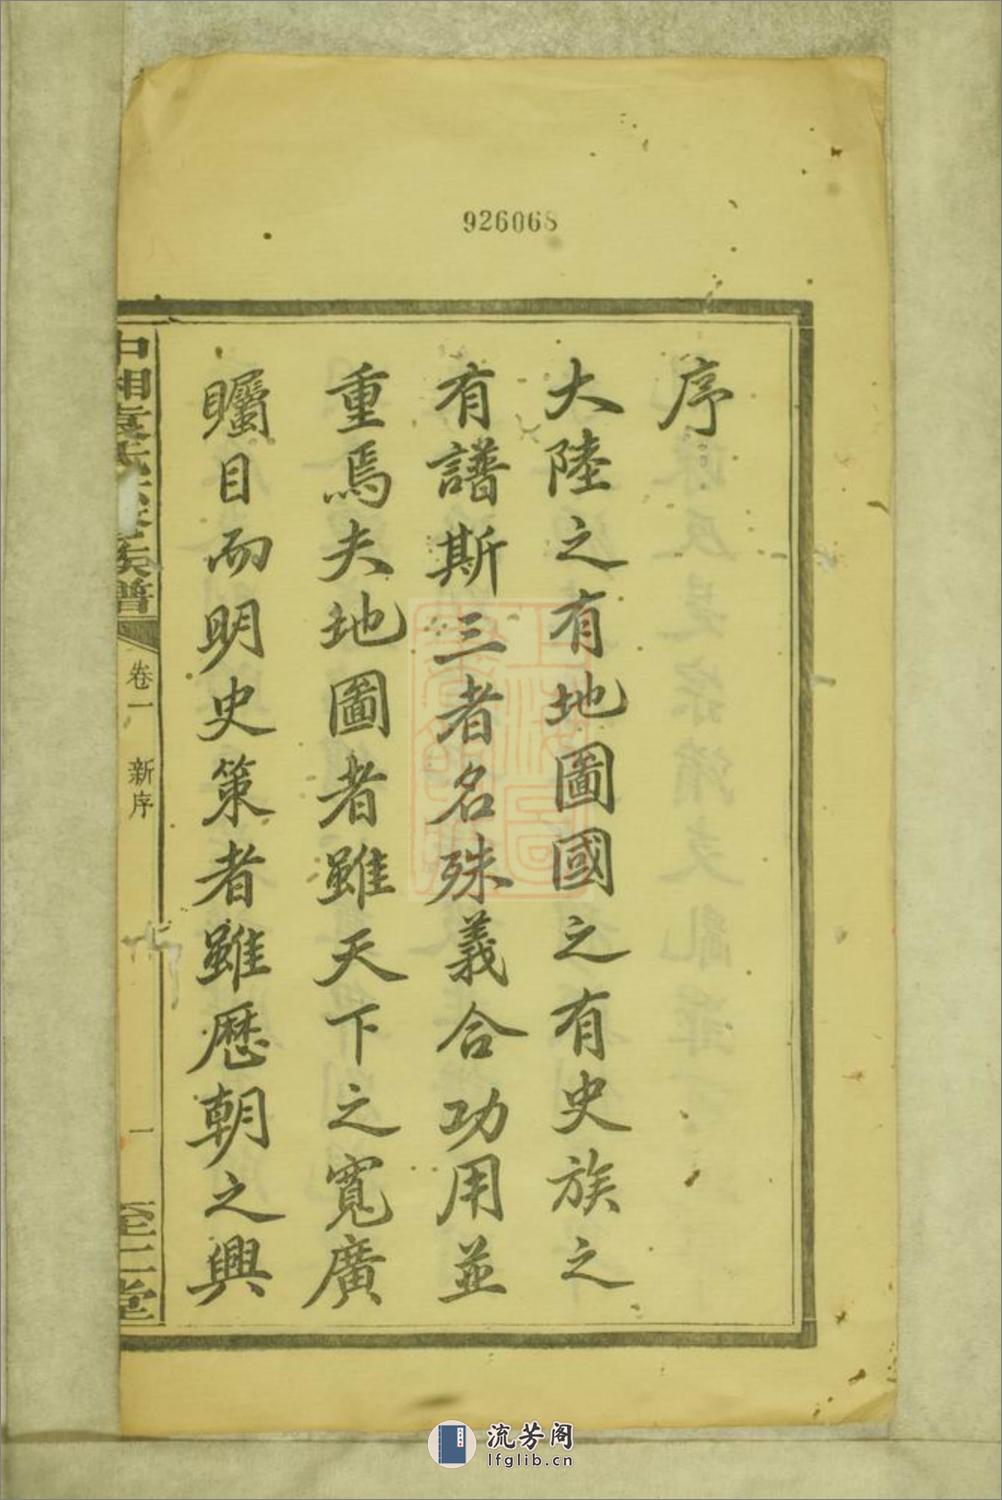 926068
序
大陸之有地圖國之有史族之
有譜斯三者名殊義合功用並
重焉夫地圖者雖天下之寬廣
矚目而明史策者雖歷朝之興
中湘袁氏六修族譜
卷一
新序
一
至仁堂
流芳阁
lfglib.cn